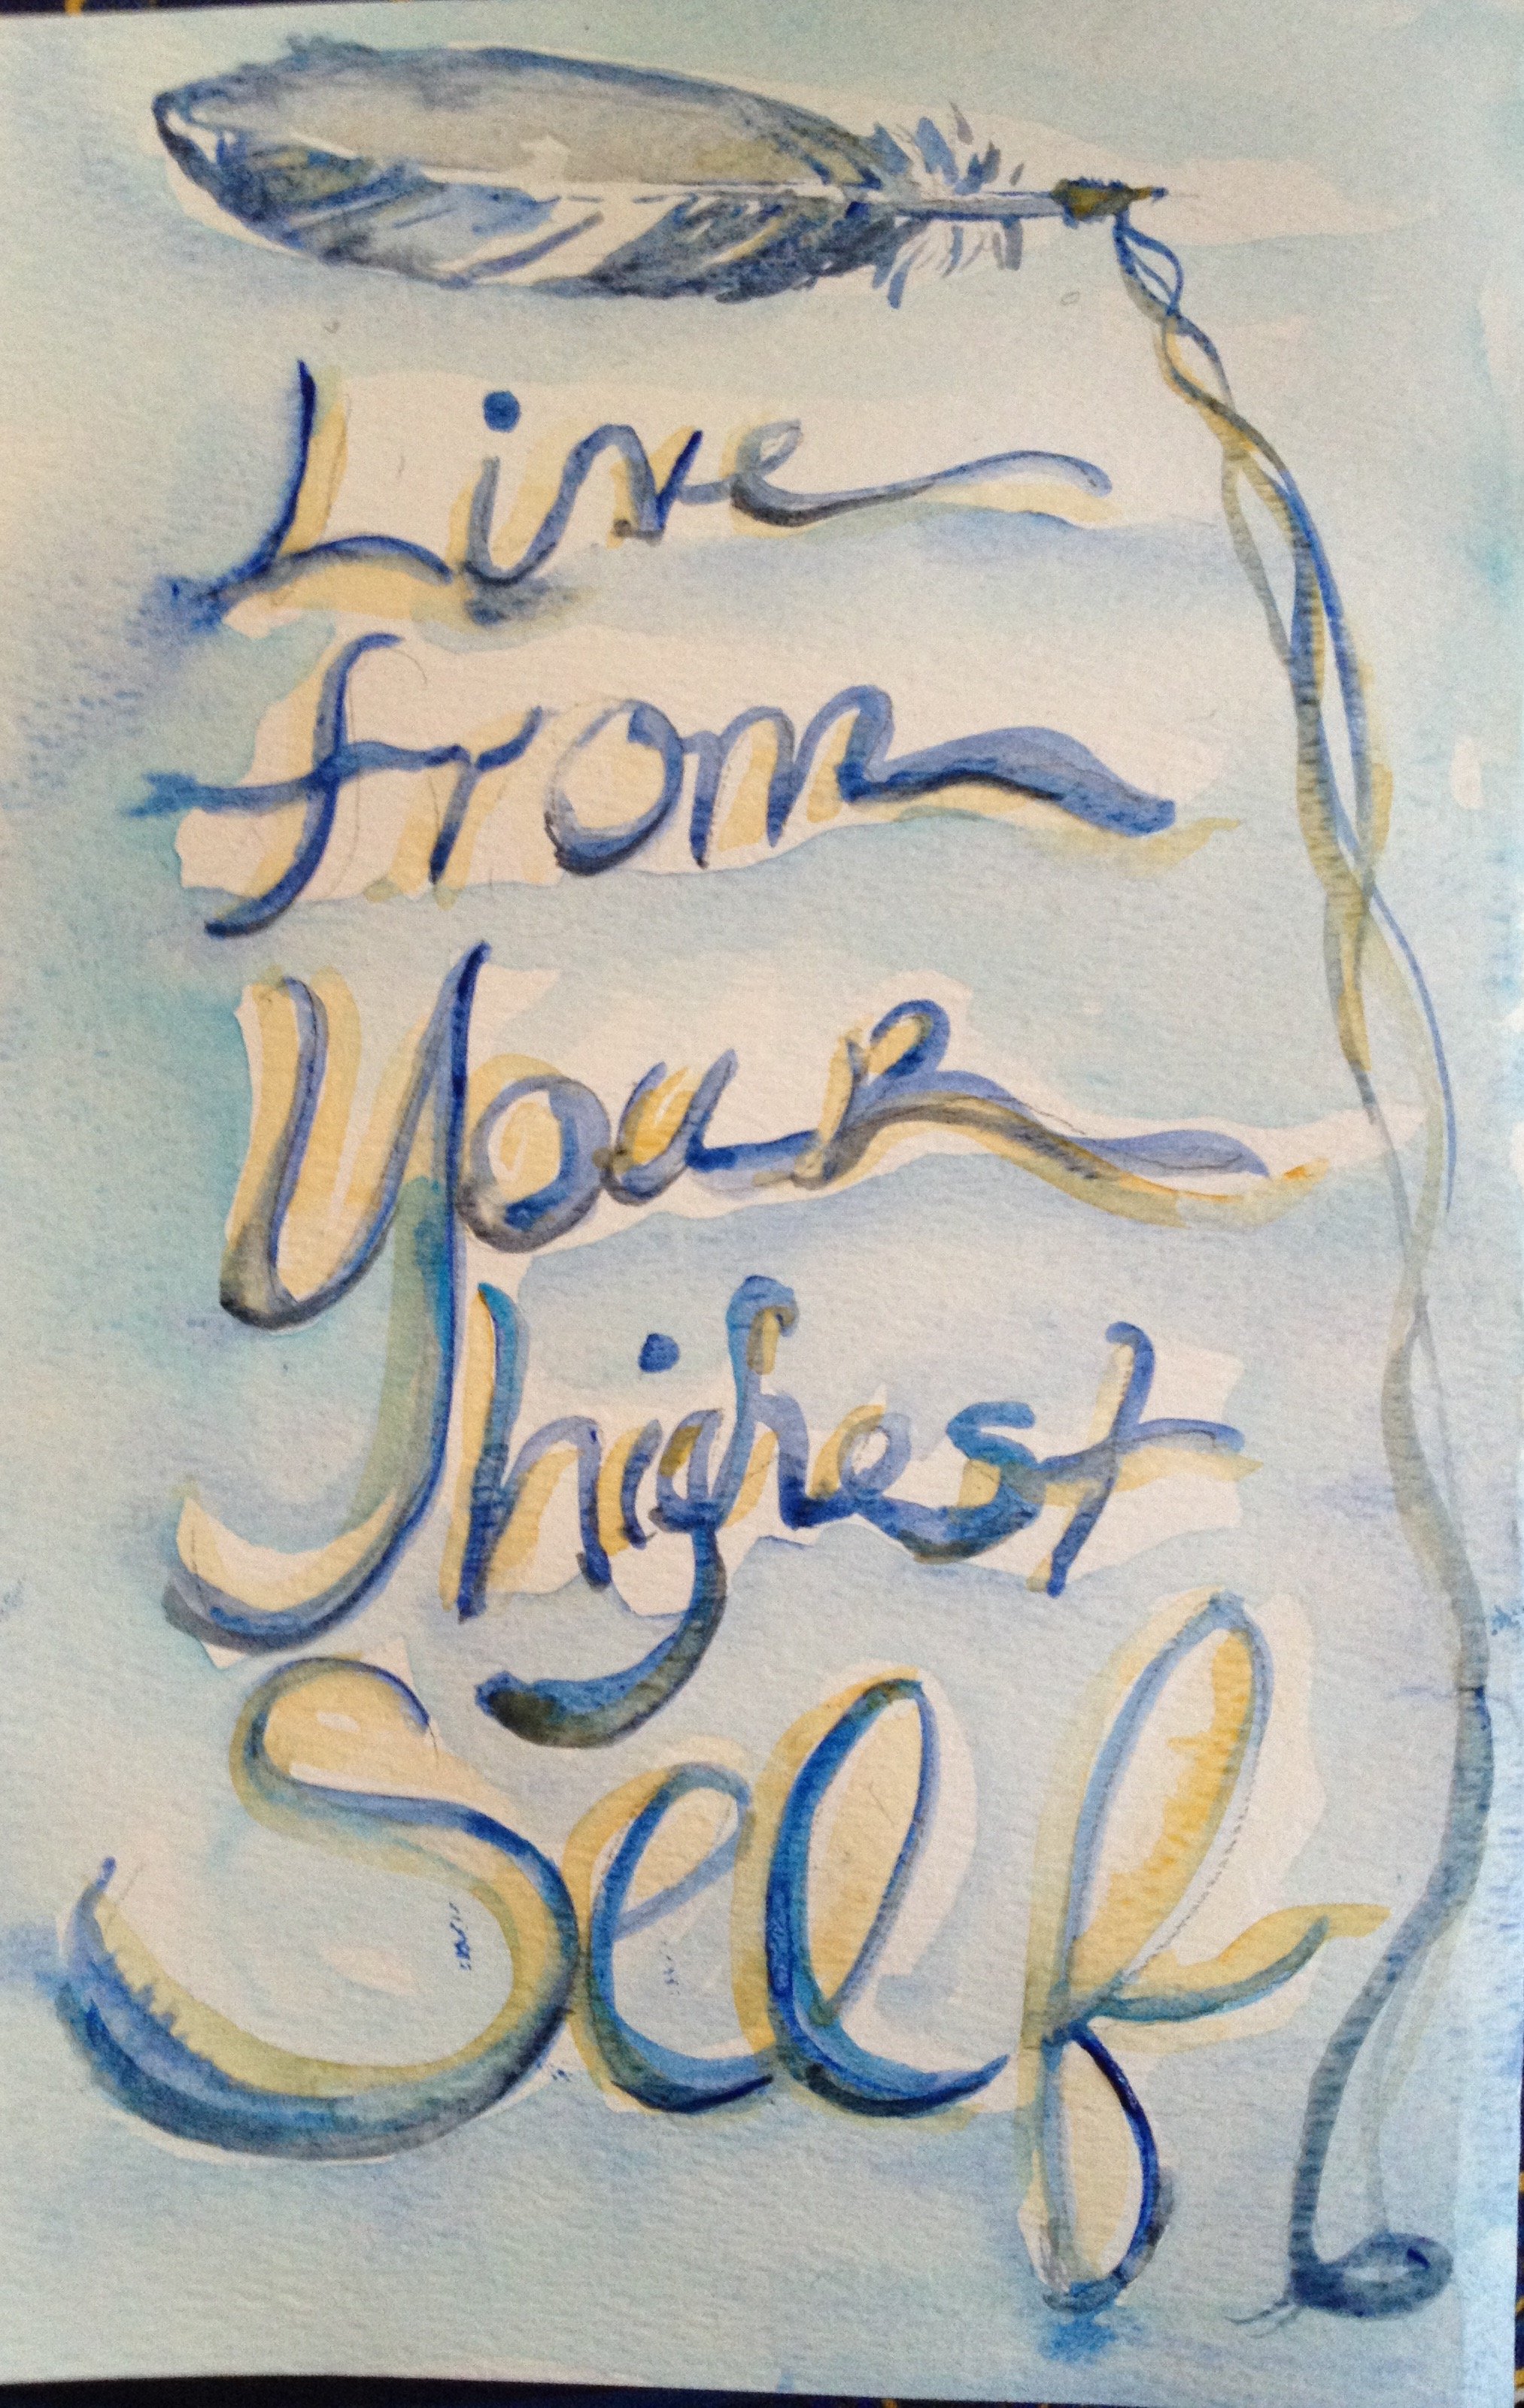 Live
from
Your
highest
Self